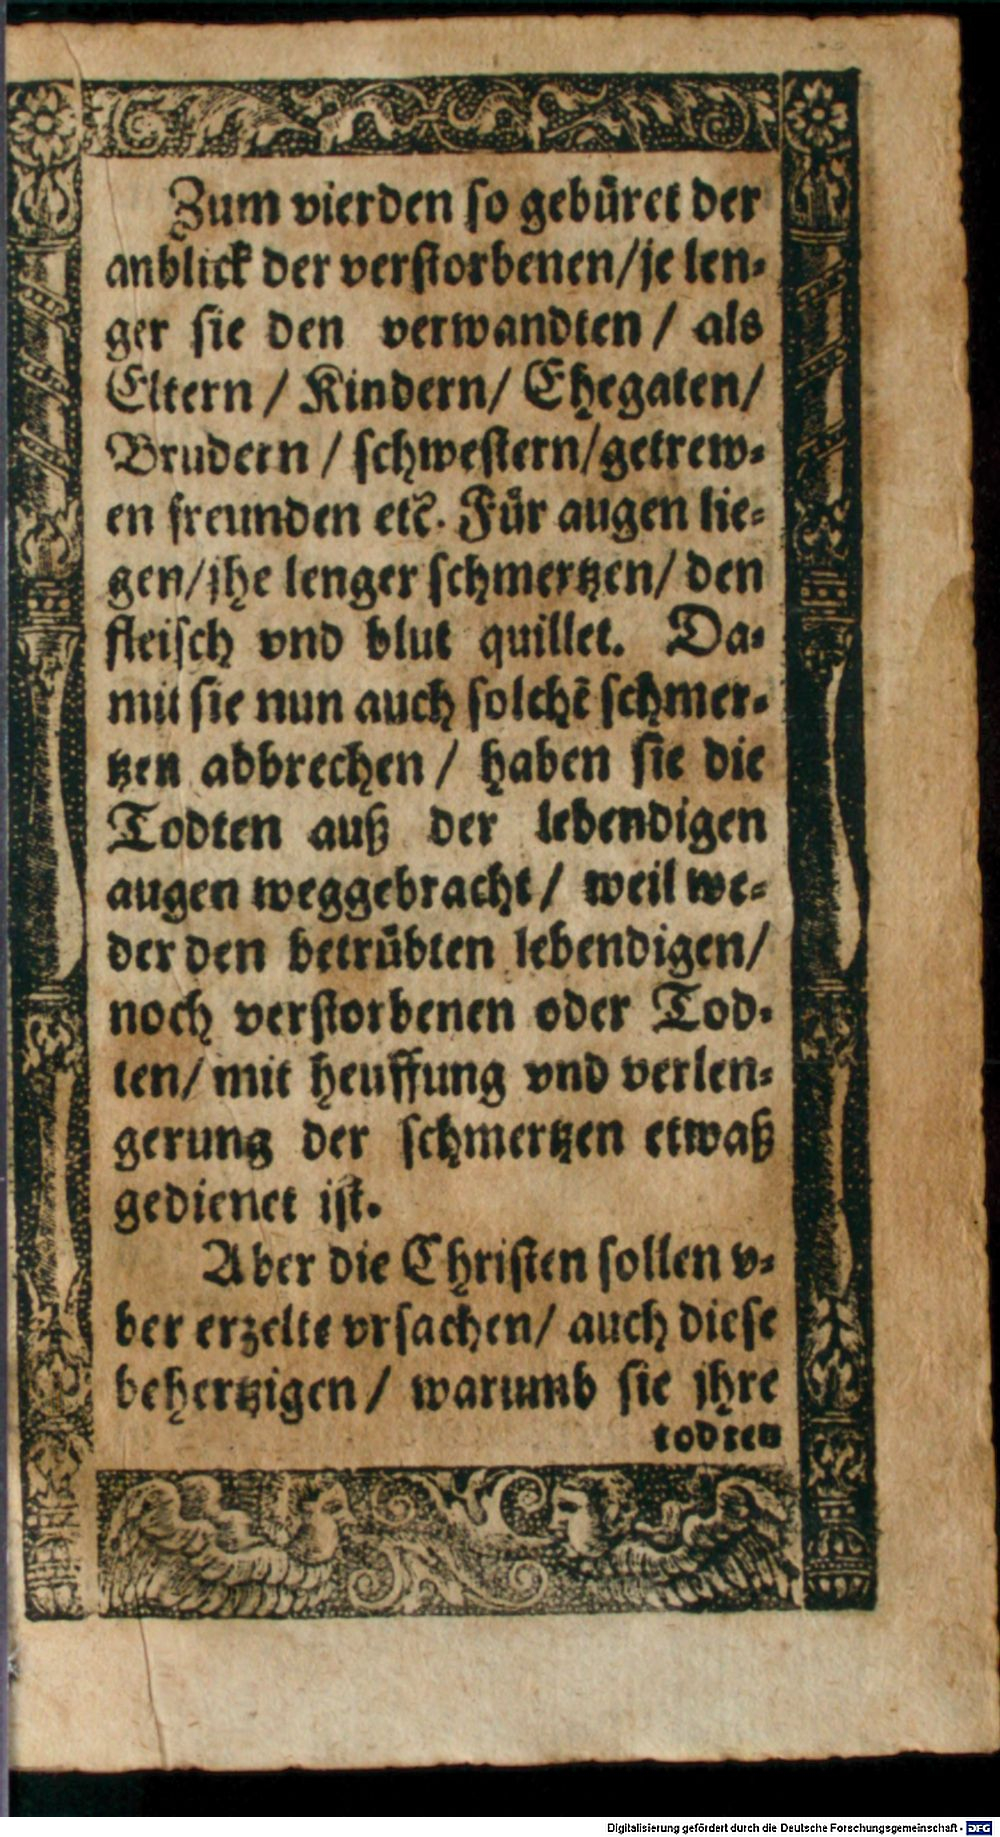 Zum vierden so gebüret der
anblick der verstorbenen/je len-
ger sie den verwandten / als
Eltern / Kindern/ Ehegaten/
Brudern / schwestern/getrew-
en freunden etc. Für augen lie-
gen/jhe lenger schmertzen/ den
fleisch vnd blut quillet. Da-
mit sie nun auch solchē schmer-
tzen abbrechen / haben sie die
Todten auß der lebendigen
augen weggebracht / weil we-
der den betrübten lebendigen/
noch verstorbenen oder Tod-
ten/ mit heuffung vnd verlen-
gerung der schmertzen etwaß
gedienet ist.
Aber die Christen sollen v-
ber erzelte vrsachen/ auch diese
behertzigen / warumb sie jhre
todten
Digitalisierung gefördert durch die Deutsche Forschungsgemeinschaft - DFG